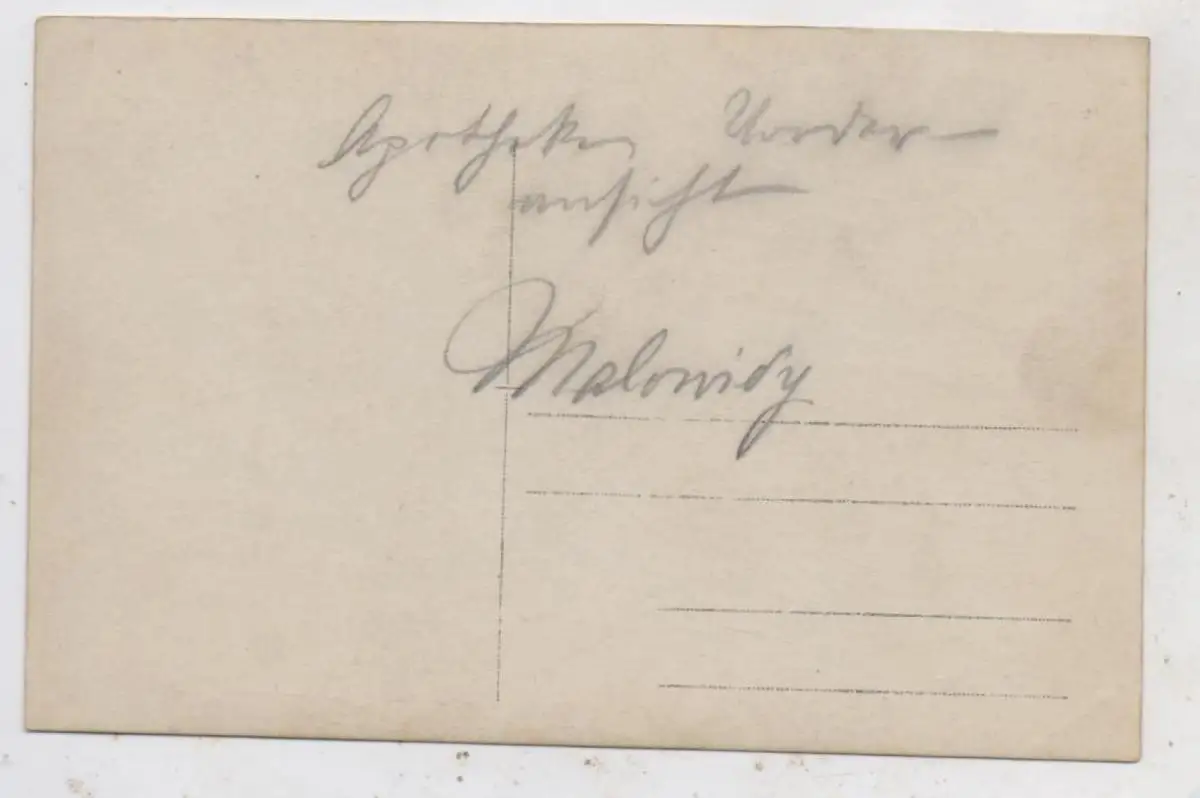 Apotheke, Vorder-
ansicht
Malowidy